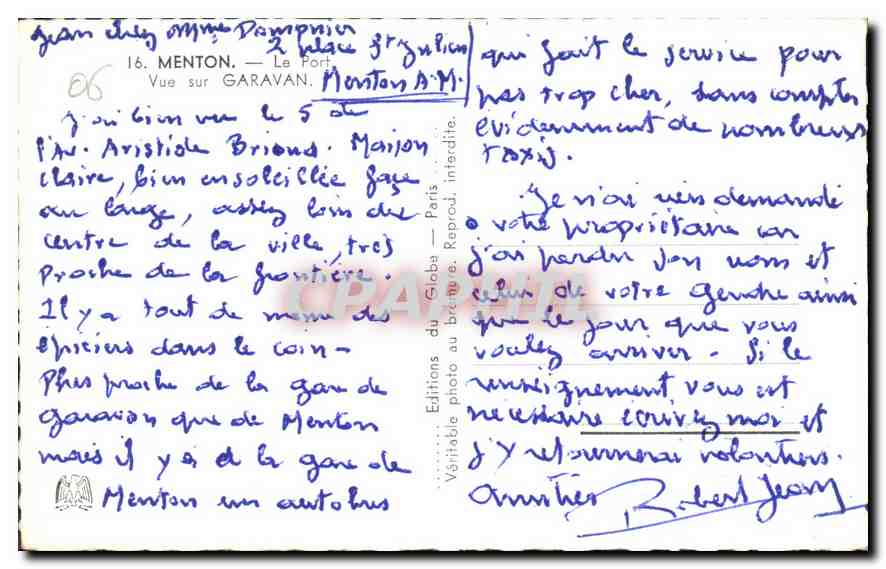 Jean chez Mme Dampnier
2 place St Julien
Menton A.M.
16. MENTON. — Le Port
Vue sur GARAVAN.
06
J'ai bien vu le 5 de
l'Av. Aristide Briand. Maison
claire, bien ensoleillée face
au large, assez loin du
centre de la ville, très
proche de la frontière.
Il y a tout de même des
épiciers dans le coin —
Plus proche de la gare de
garavan que de Menton
mais il y a de la gare de
Menton un autobus
Editions du Globe — Paris
Véritable photo au bromure. Reprod. interdite.
qui fait le service pour
pas trop cher, sans compter
évidemment de nombreux
taxis.
Je n'ai rien demandé
à votre propriétaire car
j'ai perdu son nom et
celui de votre gendre ainsi
que le jour que vous
voulez arriver. Si le
renseignement vous est
nécessaire écrivez moi et
j'y retournerai volontiers.
Amitiés Robert Jean
CPAPHIL